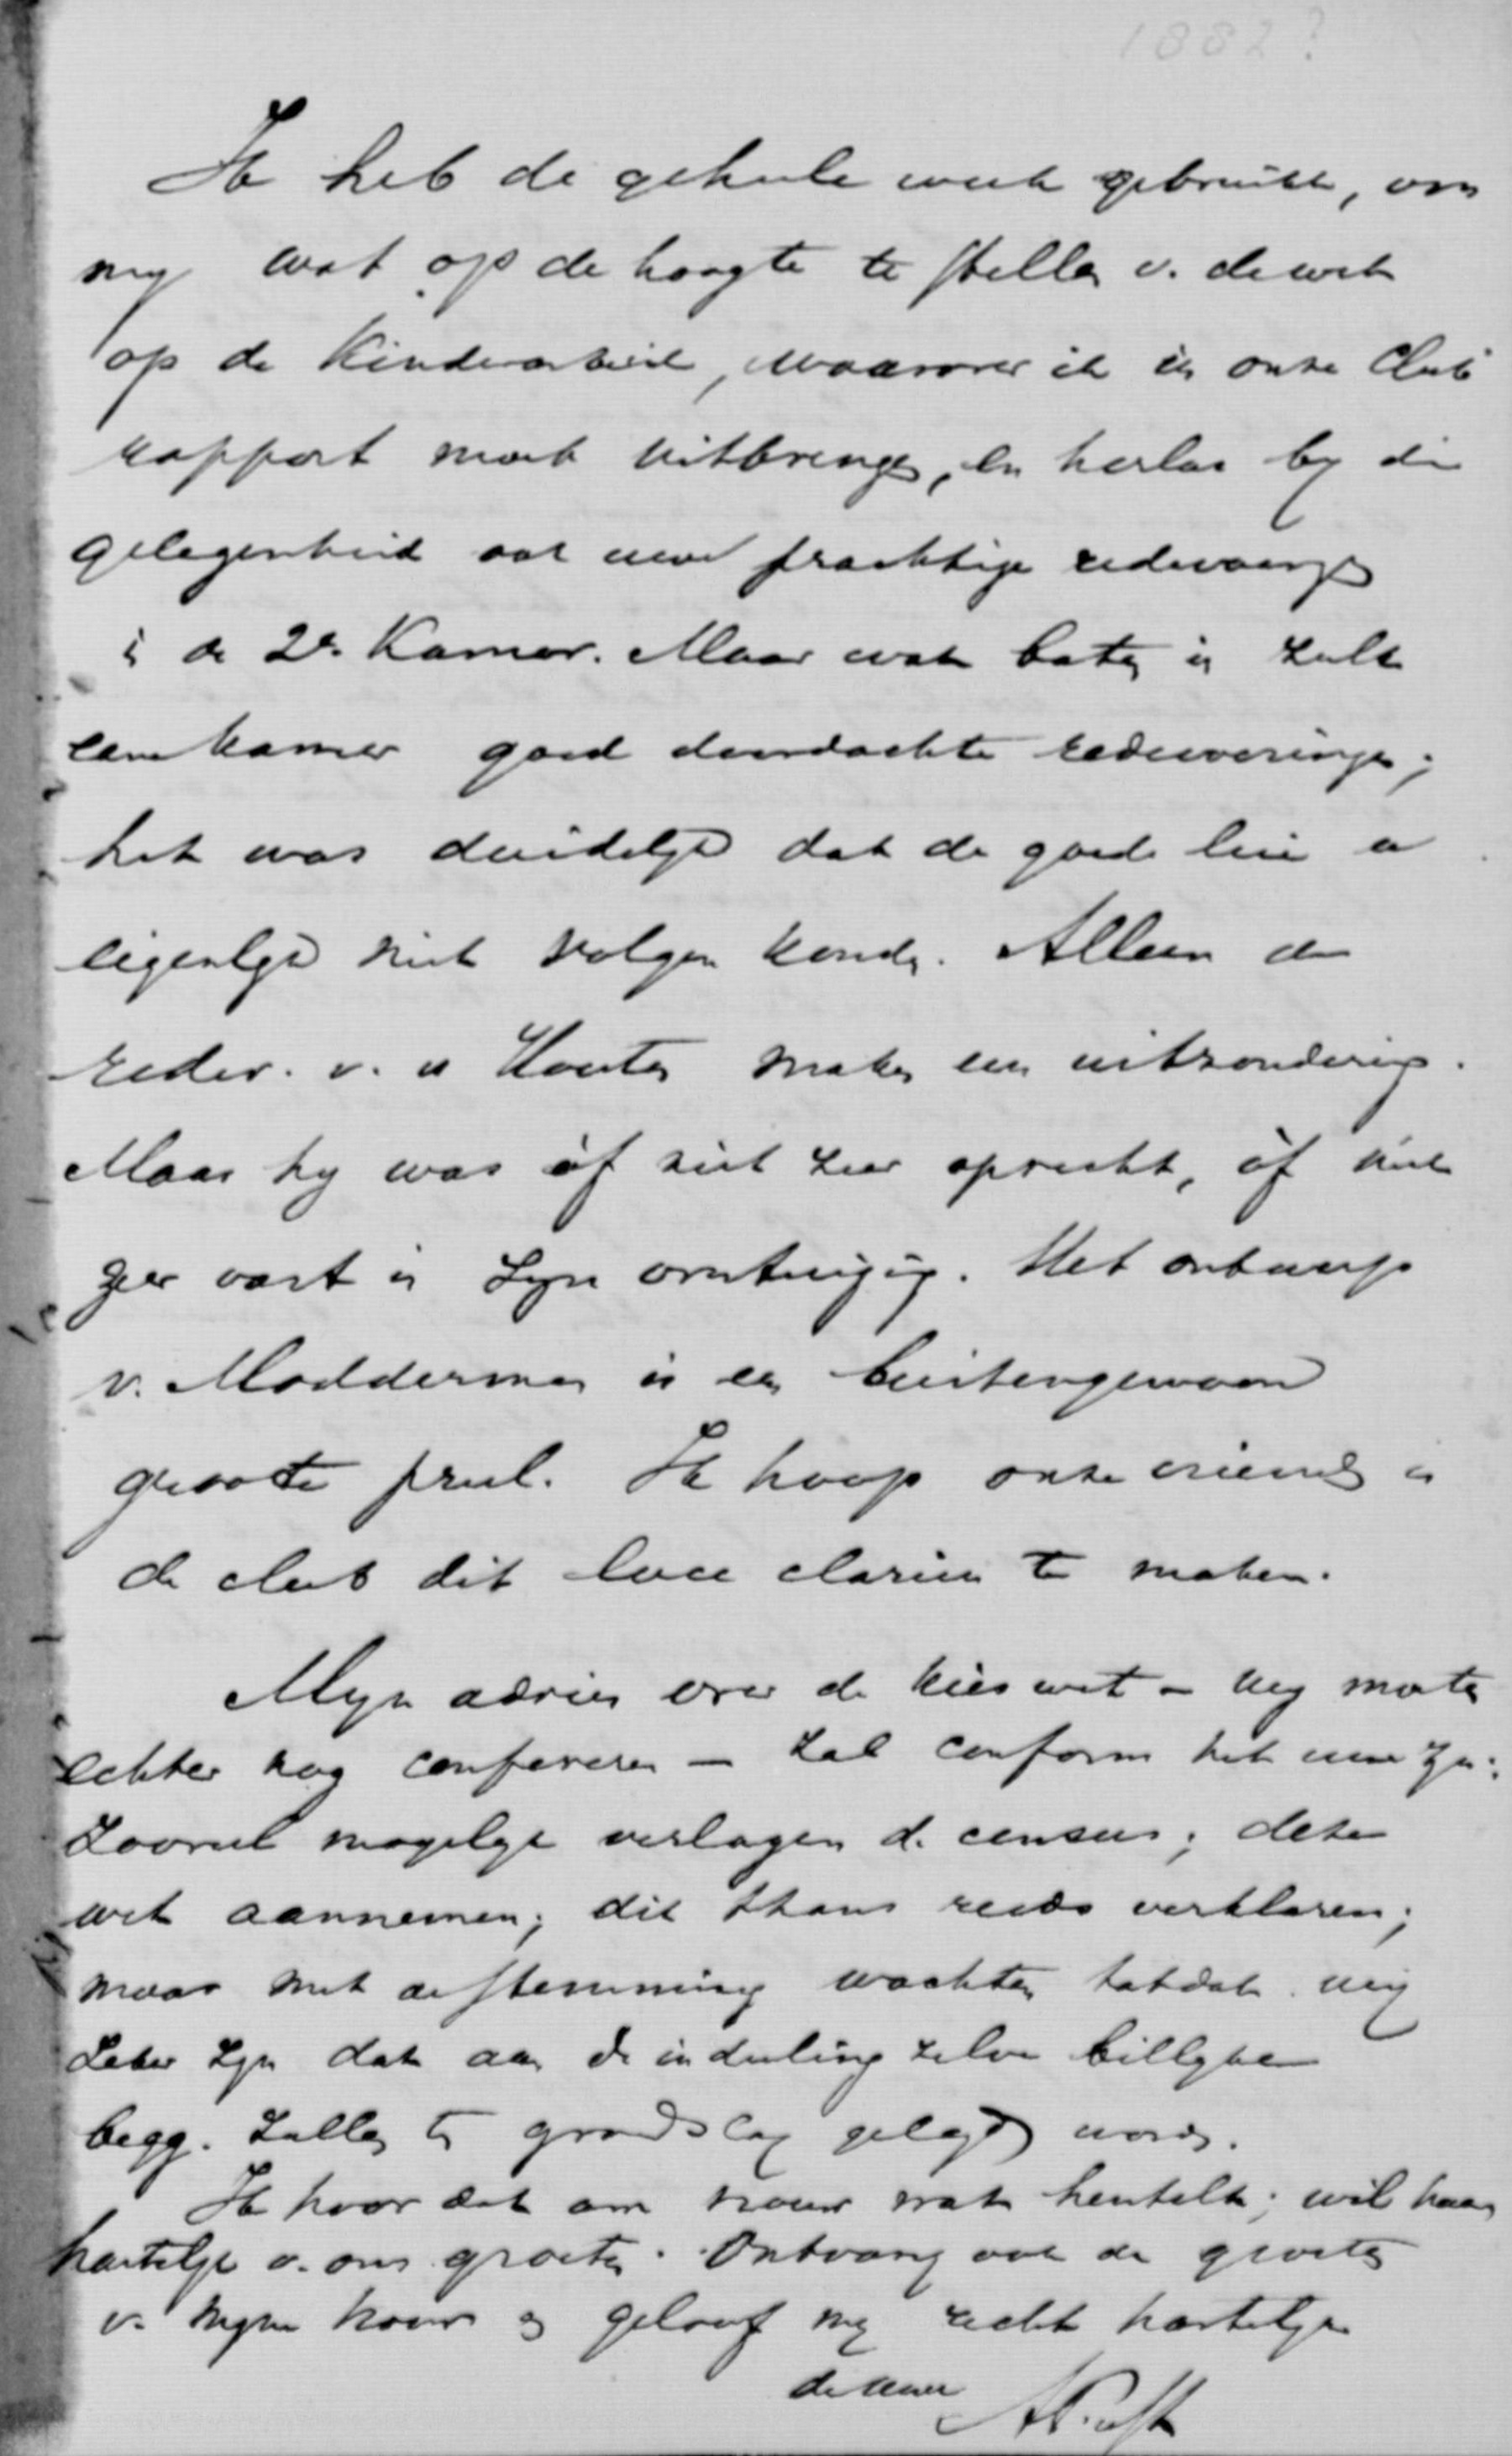 1882?
Ik heb de geheele week gebruikt, om
my wat op de hoogte te stellen v. de wet
op de Kinderarbeid, waarover ik in onze Club
rapport moet uitbrengen, en herlas by die
gelegenheid ook uwe prachtige redevoeringen
in de 2e Kamer. Maar wat baten in zulk
eene kamer goed doordachte redevoeringen;
het was duidelyk dat de goede lui u
eigenlyk niet volgen konden. Alleen de
redev. v. v Houten maken een uitzondering.
Maar hy was òf niet zeer oprecht, òf niet
zeer vast in zyn overtuiging. Het ontwerp
v. Modderman is een buitengewoon
groote prul. Ik hoop onze vrienden in
de club dit luce clarius te maken.
Myn advies over de kieswet - wy moeten
echter nog confereren - zal conform het uwe zyn:
Zooveel mogelyk verlagen d. census; deze
wet aannemen; dit thans reeds verklaren;
maar met de stemming wachten totdat wy
zeker zyn dat aan de indeeling zelve billyke
begg. zullen ten grondslag gelegd worden.
Ik hoor dat uw vrouw wat herstelt; wil haar
hartelyk v. ons groeten. Ontvang ook de groeten
v. myne vrouw en geloof my recht hartelyk
de uwe